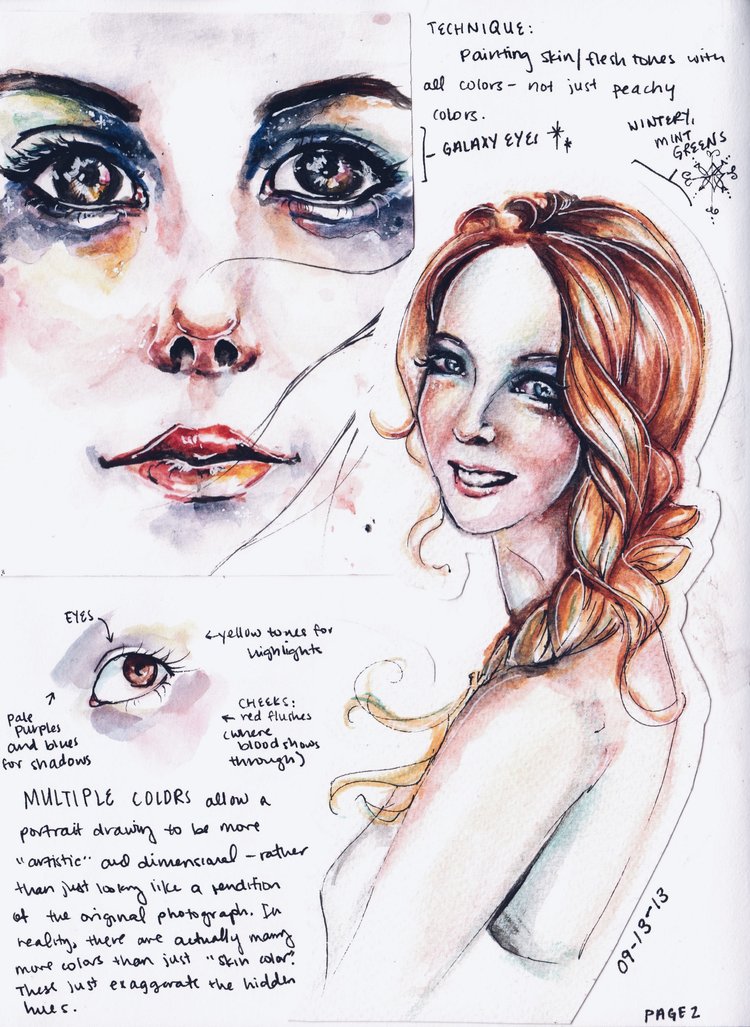 TECHNIQUE:
Painting skin/flesh tones with
all colors - not just peachy
colors.
- GALAXY EYES
WINTERY,
MINT
GREENS
EYES
yellow tones for
highlights
pale
purples
and blues
for shadows
CHEEKS:
red flushes
(where
blood shows
through)
MULTIPLE COLORS allow a
portrait drawing to be more
"artistic" and dimensional - rather
than just looking like a rendition
of the original photograph. In
reality, there are actually many
more colors than just "skin color".
These just exaggerate the hidden
hues.
09-13-13
PAGE 2